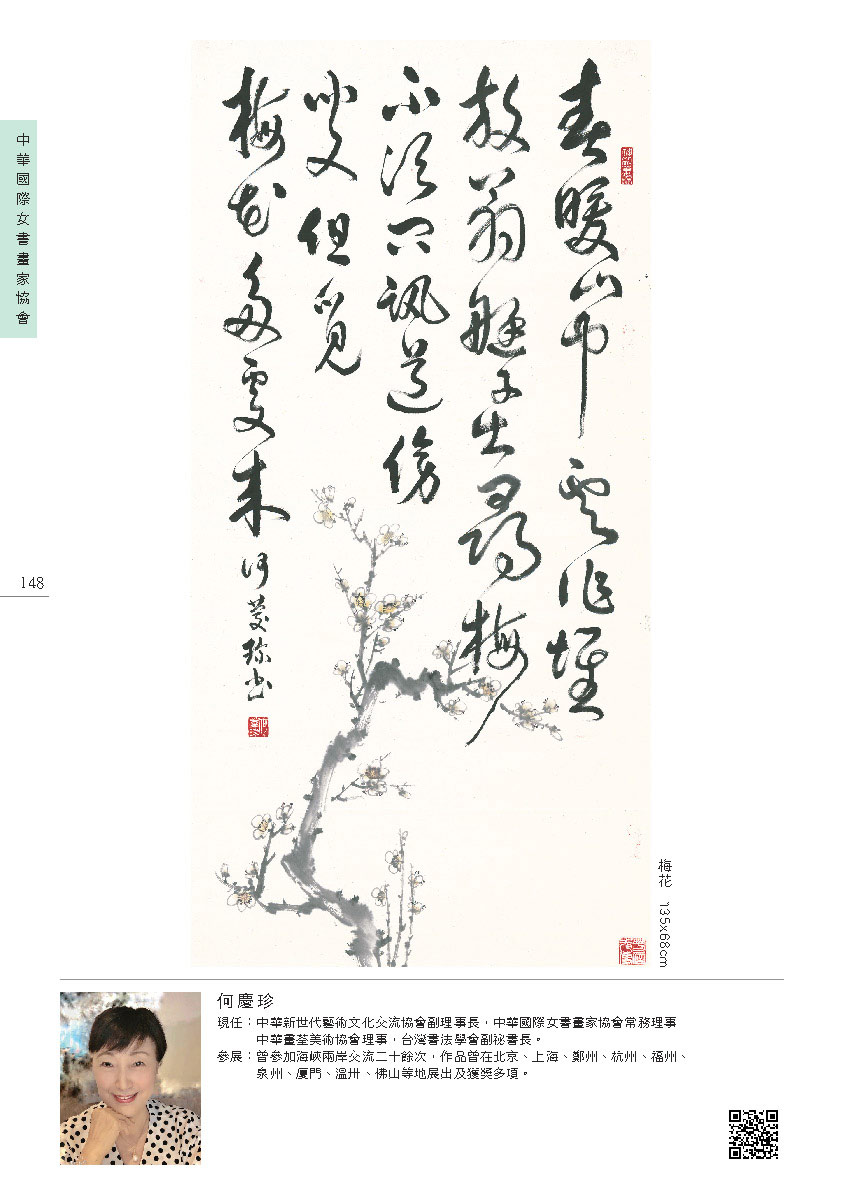 中華國際女書畫家協會
148
春暖山中雲作堆
放翁艇子出尋梅
不須問訊道傍
叟但覓
梅花多處來 何慶珍書
梅花 135x68cm
何慶珍
現任：中華新世代藝術文化交流協會副理事長，中華國際女書畫家協會常務理事
中華畫荃美術協會理事，台灣書法學會副秘書長。
參展：曾參加海峽兩岸交流二十餘次，作品曾在北京、上海、鄭州、杭州、福州、
泉州、廈門、溫卅、佛山等地展出及獲獎多項。